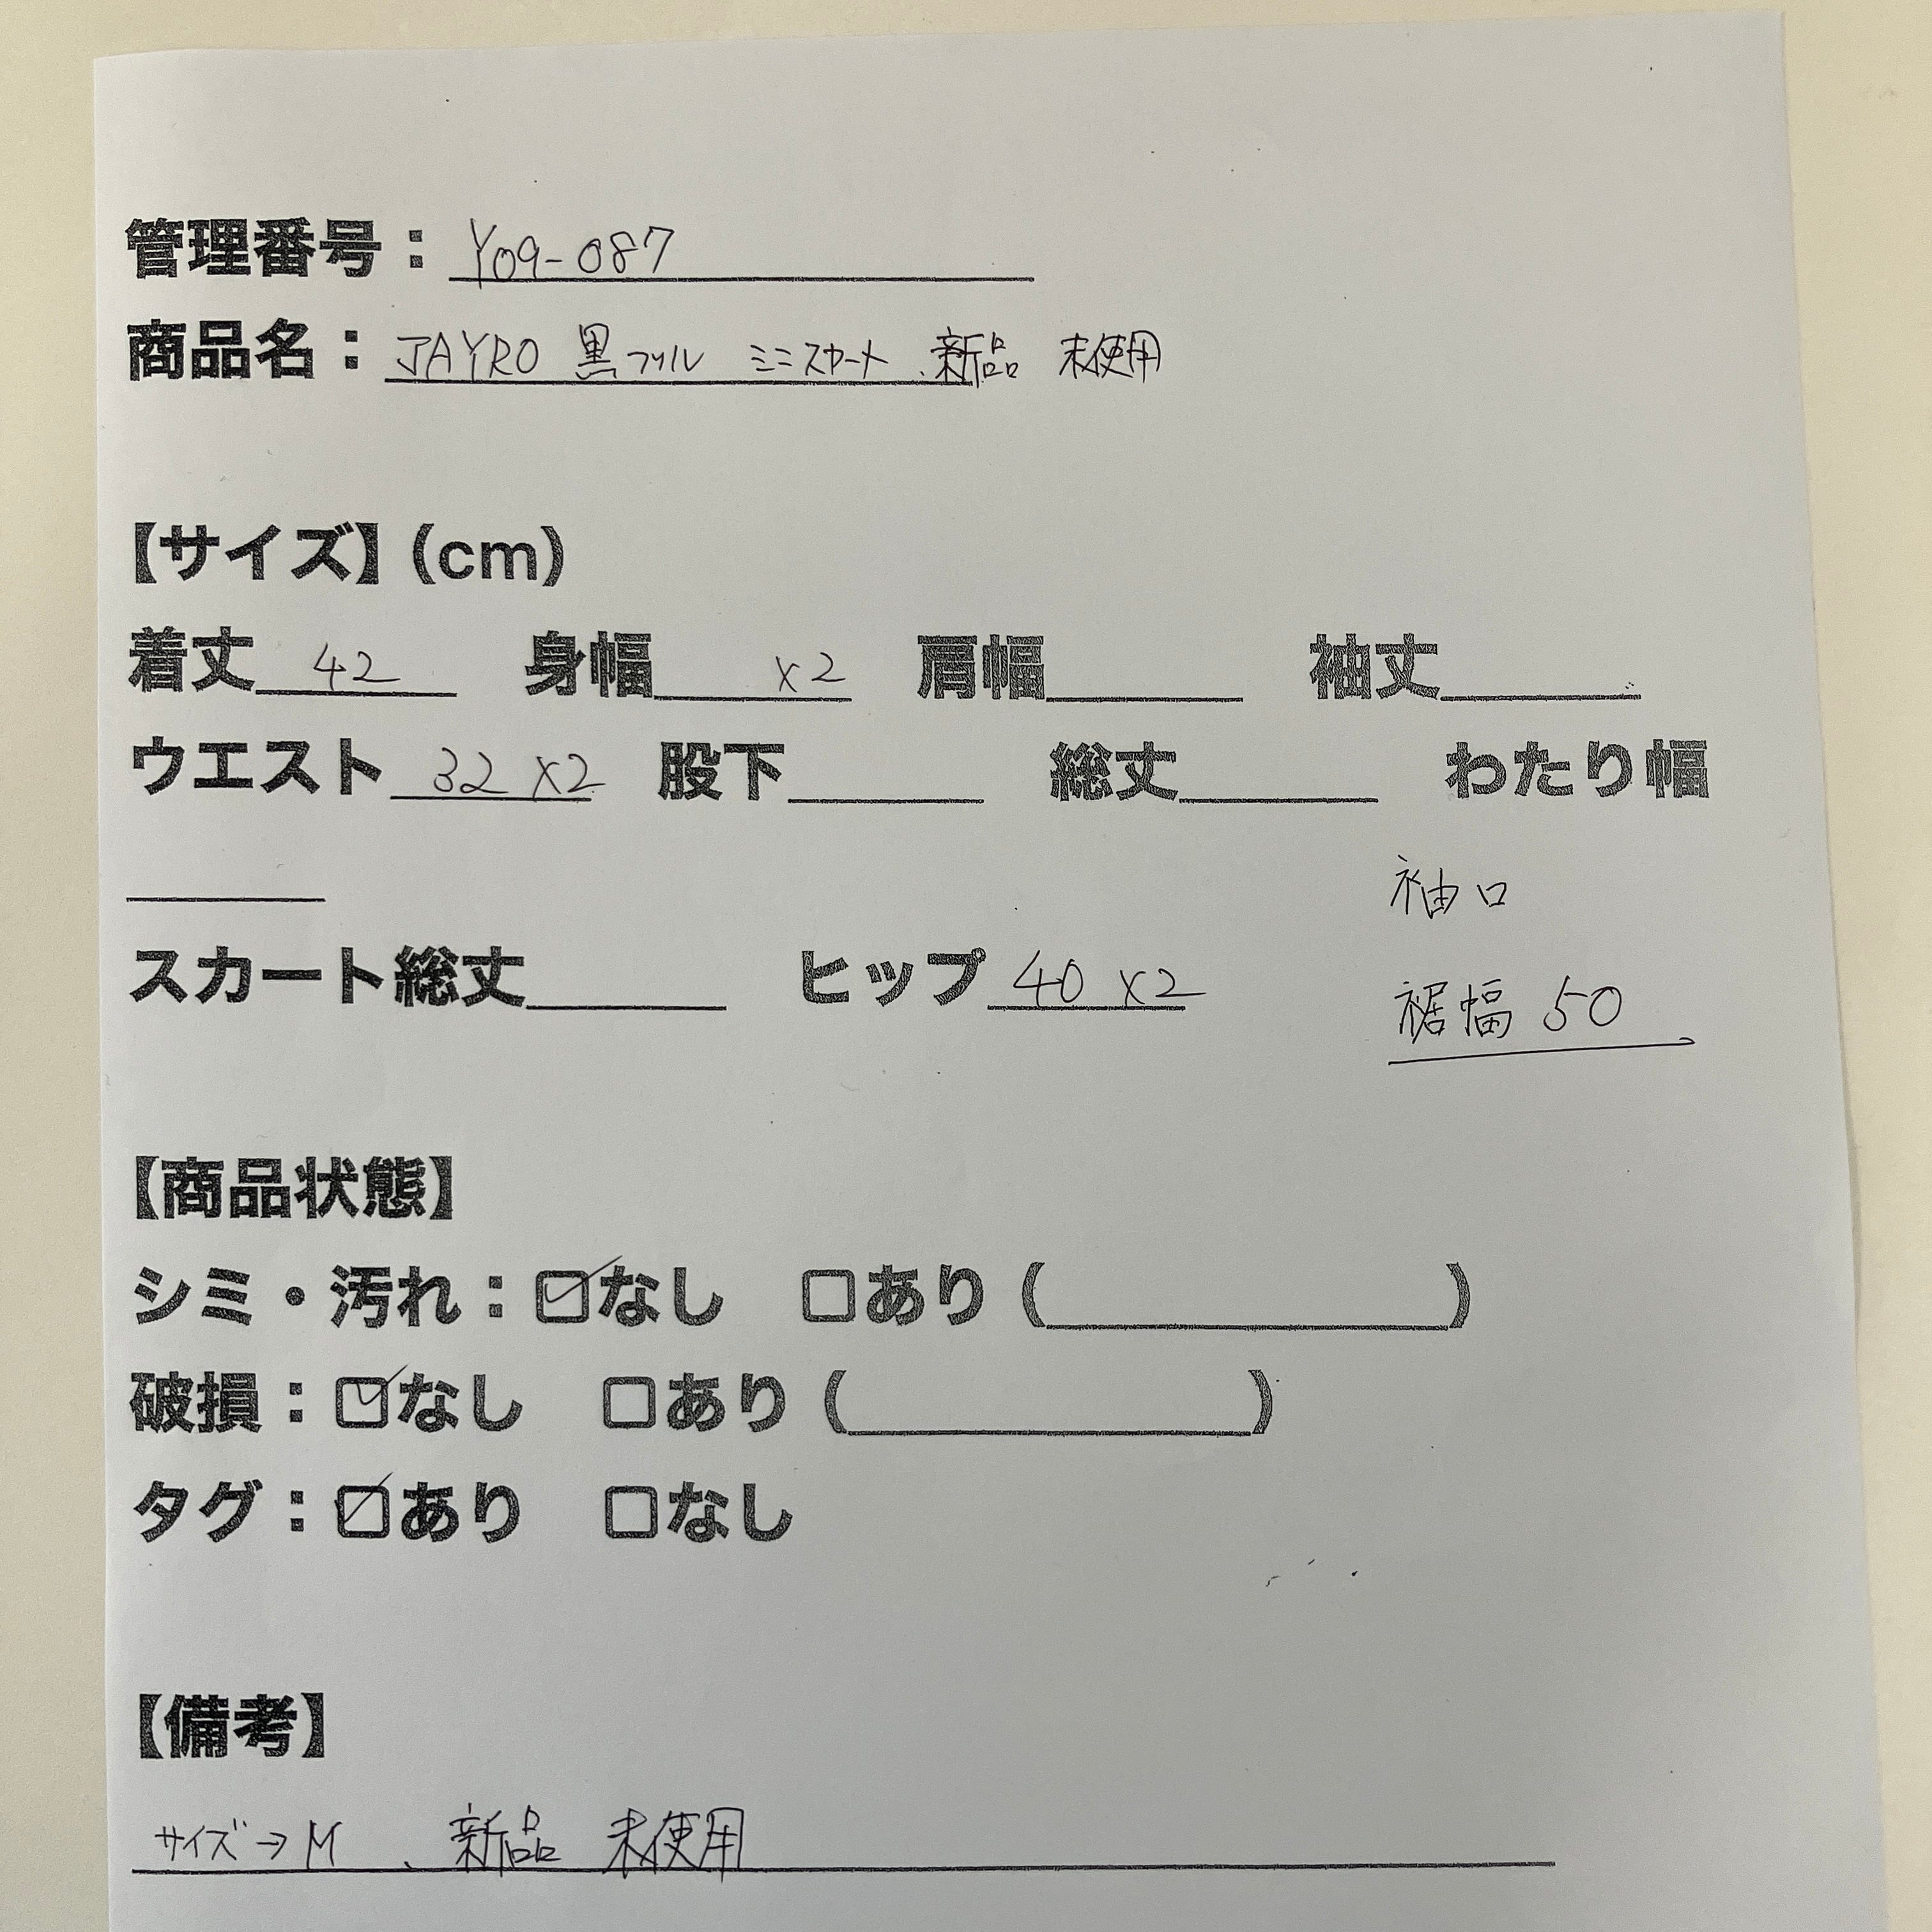 管理番号：Y09-087
商品名：JAYRO 黒フリル ミニスカート、新品 未使用
【サイズ】(cm)
着丈 42 身幅 x2 肩幅 袖丈
ウエスト 32 x2 股下 総丈 わたり幅
袖口
スカート総丈 ヒップ 40 x2
裾幅 50
【商品状態】
シミ・汚れ：☑なし □あり（ ）
破損：☑なし □あり（ ）
タグ：☑あり □なし
【備考】
サイズ→M、新品 未使用